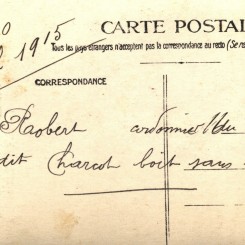 0
2 1915
CARTE POSTAL
Tous les pays étrangers n'acceptent pas la correspondance au recto (Se ren
CORRESPONDANCE
Robert cordonnier
dit Charcot boit sans